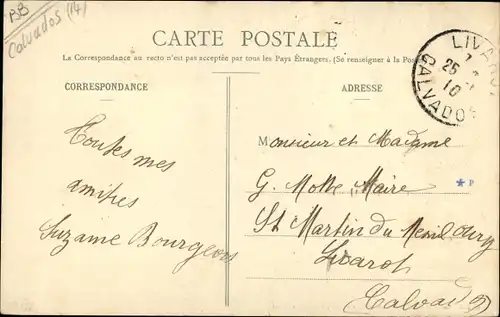 BB
Calvados (14)
CARTE POSTALE
La Correspondance au recto n'est pas acceptée par tous les Pays Étrangers. (Se renseigner à la Poste
CORRESPONDANCE
ADRESSE
LIVAROT
25
10
CALVADOS
Toutes mes
amitiés
Suzanne Bourgeois
Monsieur et Madame
G. Motte Maire
* P
St Martin du Mesnil Oury
Livarot
Calvados